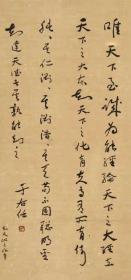 唯天下至誠為能經綸天下之大經立
天下之大本知天地之化育夫焉有所倚
肫肫其仁淵淵其淵浩浩其天苟不固聰明聖
知達天德者其孰能知之
于右任